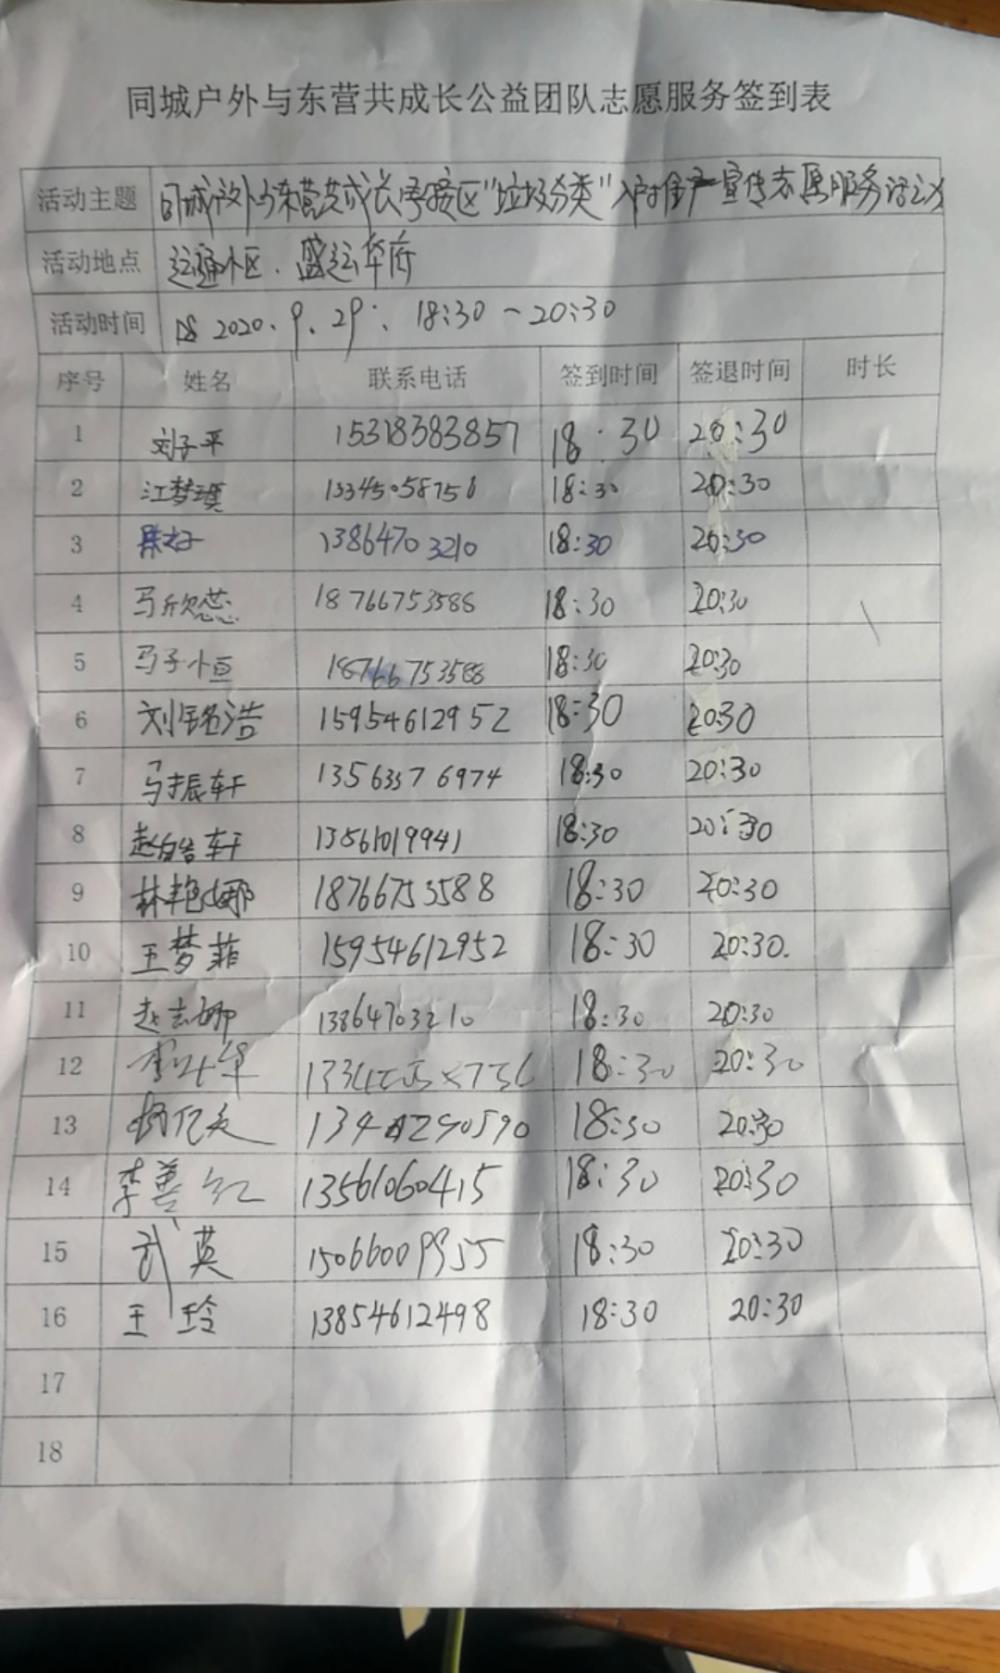 同城户外与东营共成长公益团队志愿服务签到表
活动主题 同城户外与东营共成长 区"垃圾分类"入户 宣传志愿服务活动
活动地点 运通小区、盛运华府
活动时间 2020、9、29、18:30-20:30
序号 姓名 联系电话 签到时间 签退时间 时长
1 刘子平 15318383857 18:30 20:30
2 江梦瑶 13345058756 18:30 20:30
3 13864703210 18:30 20:30
4 马欣蕊 18766753588 18:30 20:30
5 马子恒 18766753588 18:30 20:30
6 刘铭浩 15954612952 18:30 20:30
7 马振轩 13563376974 18:30 20:30
8 赵皓轩 13561019941 18:30 20:30
9 林艳娜 18766753588 18:30 20:30
10 王梦菲 15954612952 18:30 20:30.
11 赵志娜 13864703210 18:30 20:30
12 18:30 20:30
13 18:30 20:30
14 李善红 13561060415 18:30 20:30
15 武英 15066009955 18:30 20:30
16 王玲 13854612498 18:30 20:30
17
18